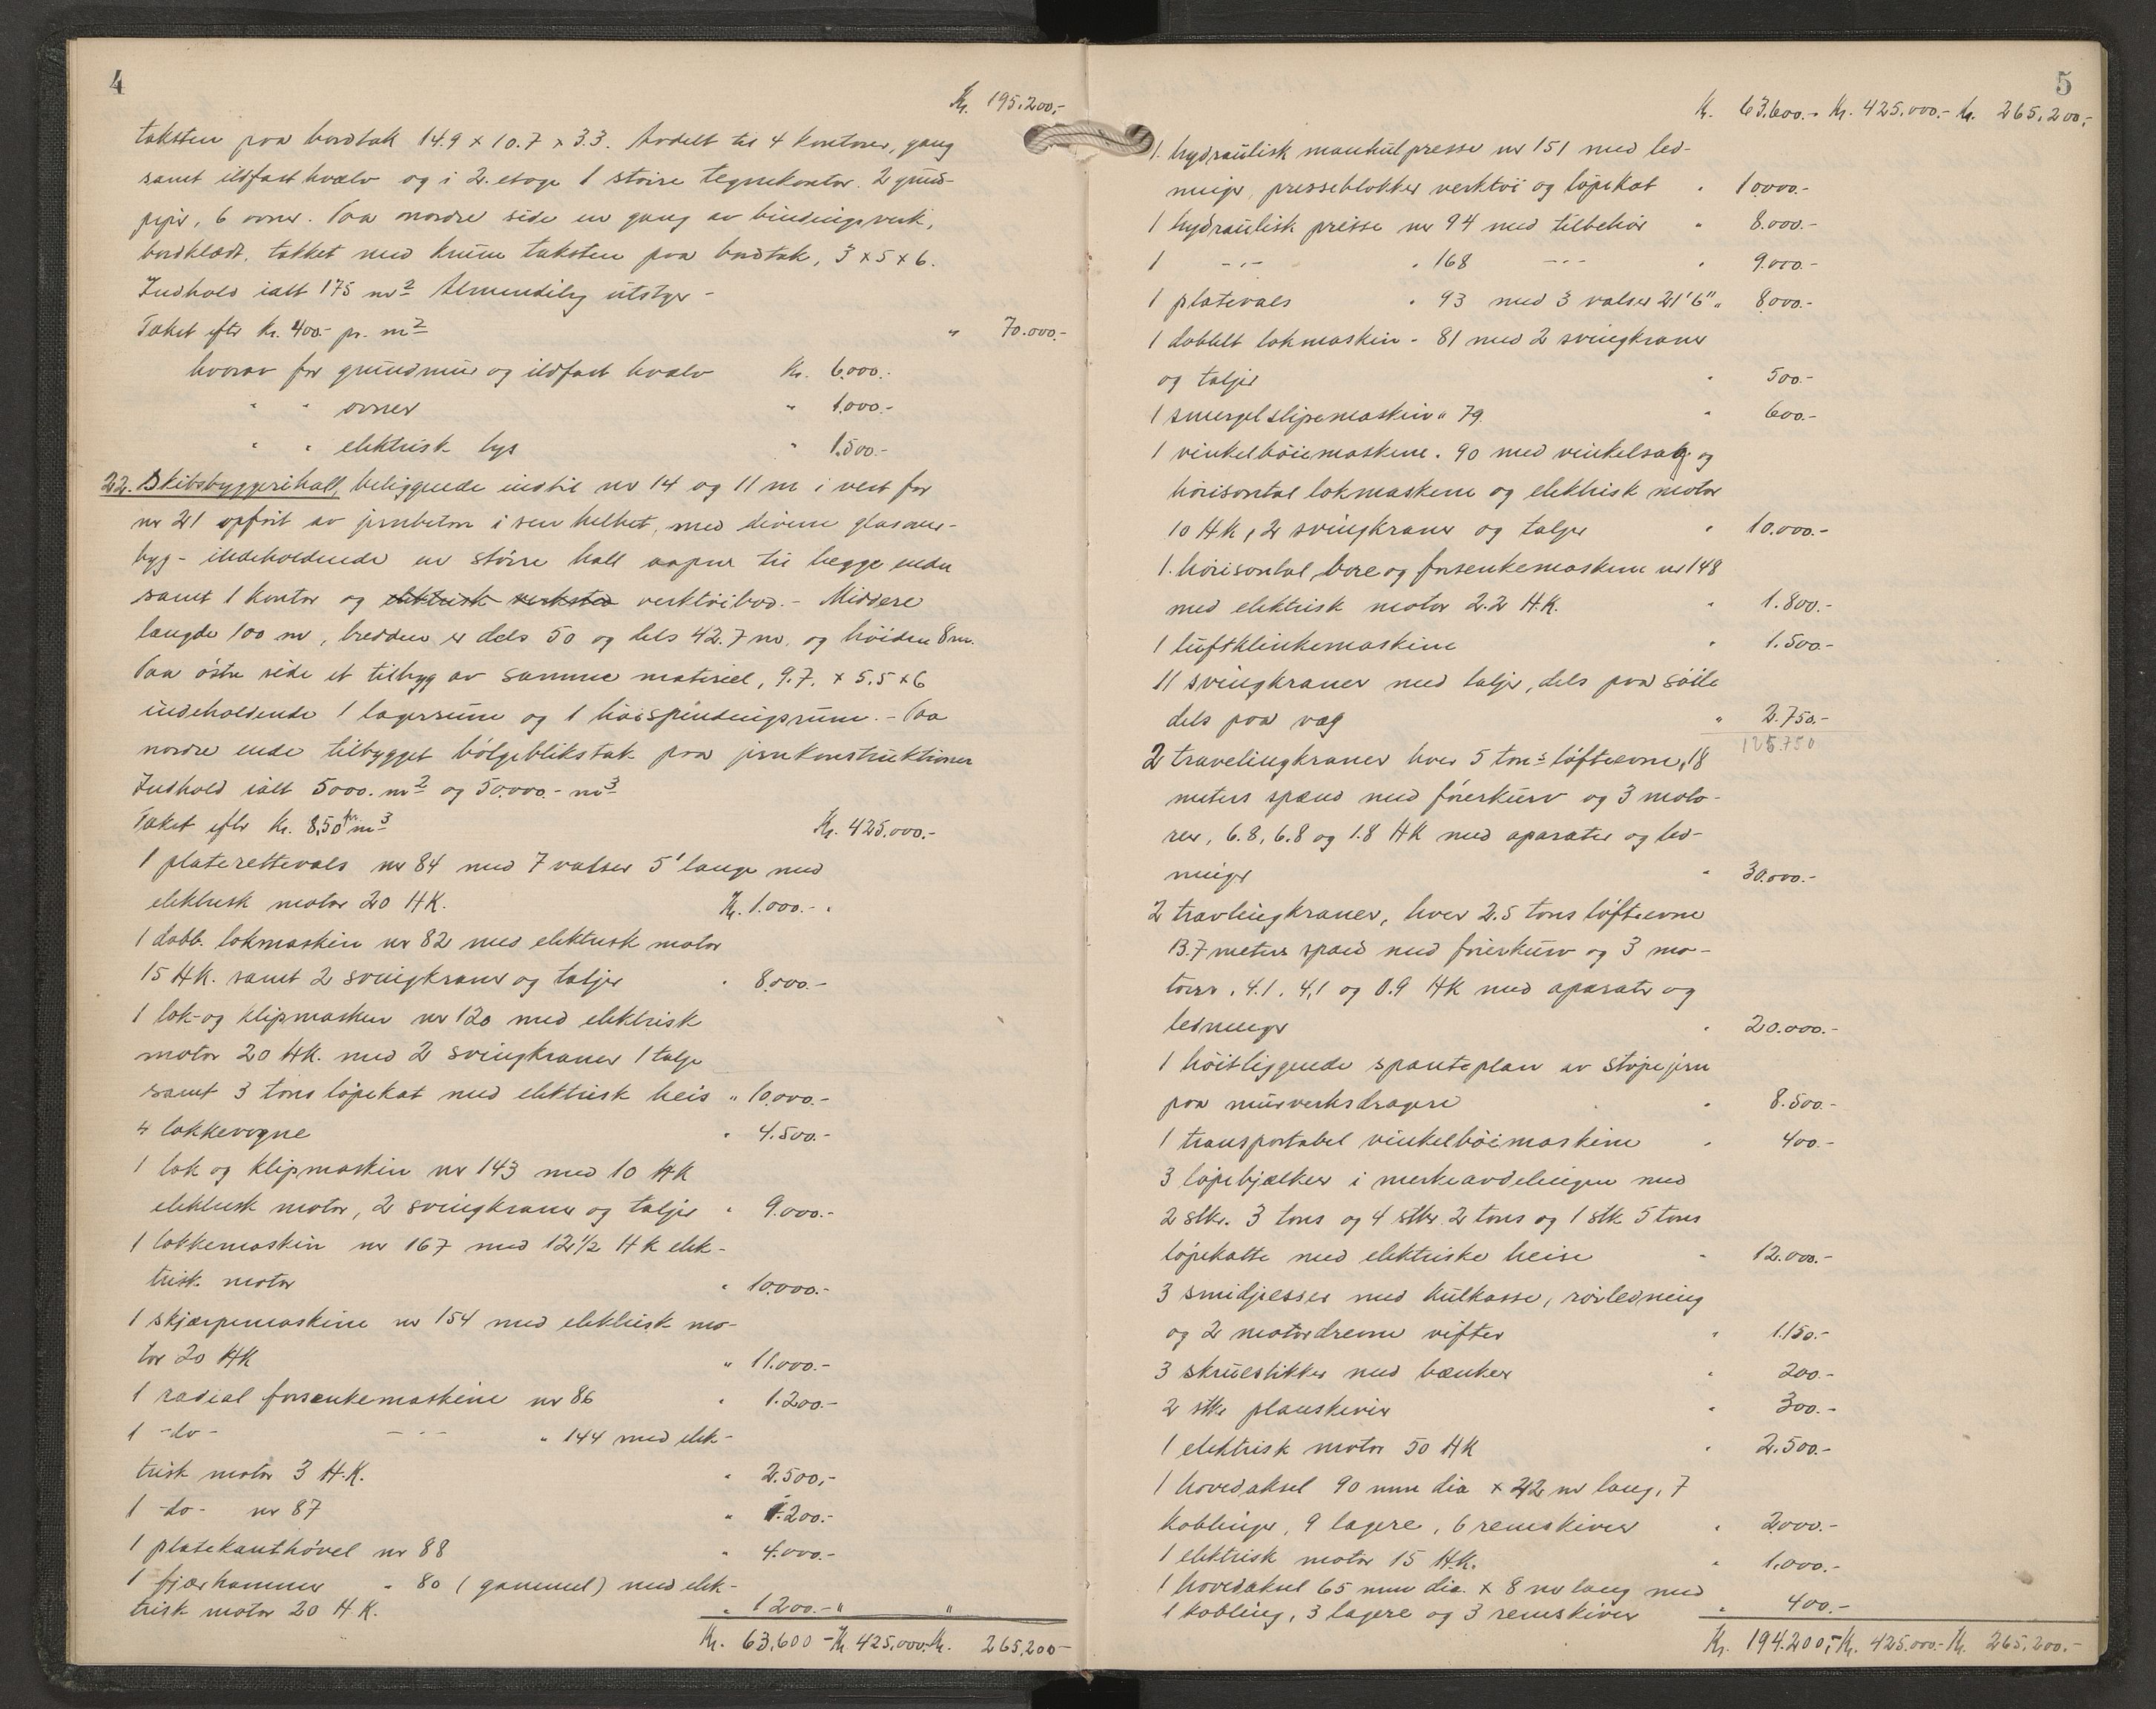 4
Kr. 195.200,-
taksten paa bordtak 14.9 x 10.7 x 3.3. Avdelt til 4 kontorer, gang
samt ildfast hvælv og i 2. etage 1 større tegnekontor. 2 grund-
piper, 6 ovner. Paa nordre side en gang av bindingsverk,
bordklædt, tækket med krum taksten paa bordtak, 3 x 5 x 6.
Indhold ialt 175 m2 Almindelig utstyr -
Taket efter Kr. 400.- pr. m2 " 70.000.-
hvorav for grundmur og ildfast hvælv Kr. 6.000.-
" " ovner " 1.000.-
" " elektrisk lys " 1.500.-
22. Skibsbyggerihall, beliggende indtil nr 14 og 11 m i vest for
nr 21 opført av jernbeton i sin helhet, med diverse glasover-
byg - indeholdende en större hall aapen til begge ender
samt 1 kontor og elektrisk verksted verktöibod. - Middere
længde 100 m, bredden er dels 50 og dels 42.7 m. og höiden 8 m.
Paa östre side et tilbyg av samme materiel, 9.7. x 5.5 x 6
indeholdende 1 lagerrum og 1 höispændingsrum. - Paa
nordre ende tilbygget bölgebliktak paa jernkonstruktioner
Indhold ialt 5000. m2 og 50.000.- m3
Taket efter Kr. 8,50 pr m3 Kr. 425.000.-
1 platerettevals nr 84 med 7 valser 5' lange med
elektrisk motor 20 HK. Kr. 1.000.-
1 dobb. lokmaskin nr 82 med elektrisk motor
15 HK. samt 2 svingkraner og taljer " 8.000.-
1 lok- og klipmaskin nr 120 med elektrisk
motor 20 HK. med 2 svingkraner 1 talje
samt 3 tons löpekat med elektrisk heis " 10.000.-
4 lokkevogne " 4.500.-
1 lok og klipmaskin nr 143 med 10 HK
elektrisk motor, 2 svingkraner og taljer " 9.000.-
1 lokkemaskin nr 167 med 12 1/2 HK elek-
trisk motor " 10.000.-
1 skjærpemaskine nr 154 med elektrisk mo-
tor 20 HK " 11.000.-
1 radial forsænkemaskine nr 86 " 1.200.-
1 -do- -"- " 144 med elek-
trisk motor 3 H.K. " 2.500,-
1 -do- nr 87 " 1.200.-
1 platekanthövel nr 88 " 4.000.-
1 fjærhammer " 80 (gammel) med elek-
trisk motor 20 H.K. " 1200.- " "
Kr. 63,600 - Kr. 425,000.- Kr. 265,200 -
5
Kr. 63.600.- Kr. 425.000.- Kr. 265.200,-
1. hydraulisk manhulpresse nr 151 med led-
ninger, presseblokker verktöi og löpekat " 10.000.-
1 hydraulisk presse nr 94 med tilbehör " 8.000.-
1 -"- " 168 -"- " 9.000.-
1 platevals " 93 med 3 valser 21'6" " 8.000.-
1 dobbelt lokmaskin " 81 med 2 svingkraner
og taljer " 500.-
1 smergelslipemaskin " 79. " 600.-
1 vinkelböiemaskine " 90 med vinkelsag og
horisontal lokmaskine og elektrisk motor
10 HK, 2 svingkraner og taljer " 10.000.-
1. horisontal bore og forsenkemaskine nr 148
med elektrisk motor 2.2 H.K. " 1.800.-
1 luftklinkemaskine " 1.500.-
11 svingkraner med taljer, dels paa söile
dels paa væg " 2.750.-
125.750
2 travelingkraner hver 5 tons löfteevne, 18
meters spænd med förerkurv og 3 moto-
rer, 6.8, 6.8 og 1.8 HK med aparater og led-
ninger " 30.000.-
2 travlingkraner, hver 2.5 tons löfteevne
13.7 meters spænd med förerkurv og 3 mo-
torer, 4.1, 4,1 og 0.9 HK med aparater og
ledninger " 20.000.-
1 höitliggende spanteplan av stöpejern
paa murverksdragere " 8.500.-
1 transportabel vinkelböimaskine " 400.-
3 löpebjælker i merkeavdelingen med
2 stkr. 3 tons og 4 stkr. 2 tons og 1 stk 5 tons
löpekatte med elektriske heise " 12.000.-
3 smidjeesser med kulkasse, rörledning
og 2 motordrevne vifter " 1.150.-
3 skruestikker med bænker " 200.-
2 stkr planskiver " 300.-
1 elektrisk motor 50 HK " 2.500.-
1 hovedaksel 90 mm dia x 42 m lang, 7
koblinger, 9 lagere, 6 remskiver " 2.000.-
1 elektrisk motor 15 H.K. " 1.000.-
1 hovedaksel 65 mm dia. x 8 m lang med
1 kobling, 3 lagere og 3 remskiver " 400.-
Kr. 194.200,- Kr. 425.000.- Kr. 265.200.-